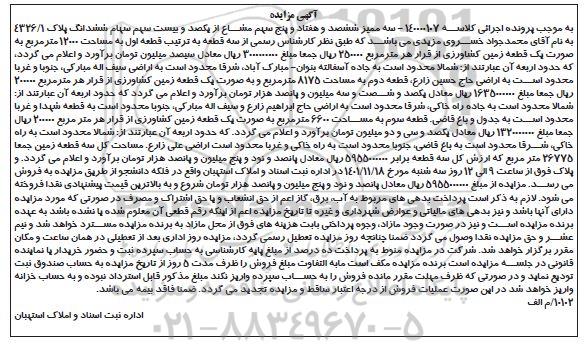 آگهی مزایده
به موجب پرونده اجرائی کلاسه ۱۴۰۰۰۰۱۰۷ – سه ممیز ششصد و هفتاد و پنج سهم مشاع از یکصد و بیست سهم سهام ششدانگ پلاک ۴۳۲۶/۱
به نام آقای محمدجواد خسروی مزیدی می باشد که طبق نظر کارشناس رسمی از سه قطعه به ترتیب قطعه اول به مساحت ۱۲۰۰۰ مترمربع به
صورت یک قطعه زمین کشاورزی از قرار هر متر مربع ۲۵۰۰۰۰ ریال جمعا مبلغ ۳۰۰۰۰۰۰۰۰۰ ریال معادل سیصد میلیون تومان برآورد و اعلام می گردد،
که حدود اربعه آن عبارتند از: شمالا محدود است به جاده آسفالته بنوان – مبارک آباد، شرقا محدود است به اراضی سیف اله مبارکی، جنوبا و غربا
محدود است به اراضی حاج حسین زارع، قطعه دوم به مساحت ۸۱۷۵ مترمربع و به صورت یک قطعه زمین کشاورزی از قرار هر مترمربع ۲۰۰۰۰۰
ریال جمعا مبلغ ۱۶۳۵۰۰۰۰۰۰ ریال معادل یکصد و شصت و سه میلیون و پانصد هزار تومان برآورد و اعلام می گردد که حدود اربعه آن عبارتند از:
شمالا محدود است به جاده خاکی، شرقا محدود است به اراضی حاج ابراهیم زارع و سیف اله مبارکی، جنوبا محدود است به قطعه شهدا و غربا
محدود است به جدول و باغ قاضی. قطعه سوم به مساحت ۶۶۰۰ مترمربع به صورت یک قطعه زمین کشاورزی از قرار هر متر مربع ۲۰۰۰۰۰ ریال
جمعا مبلغ ۱۳۲۰۰۰۰۰۰۰ ریال معادل یکصد و سی و دو میلیون تومان برآورد و اعلام می گردد. که حدود اربعه آن عبارتند از: شمالا محدود است به راه
خاکی، شرقا محدود است به باغ قاضی، جنوبا محدود است به راه خاکی و غربا محدود است اراضی علی زارع. مساحت کل سه قطعه زمین جمعا
۲۶۷۷۵ متر مربع که ارزش کل سه قطعه برابر ۵۹۵۵۰۰۰۰۰۰ ریال معادل پانصد و نود و پنج میلیون و پانصد هزار تومان برآورد و اعلام می گردد. و
پلاک فوق از ساعت ۹ الی ۱۲ روز سه شنبه مورخ ۱۴۰۱/۱۱/۱۸ در اداره ثبت اسناد و املاک استهبان واقع در فلکه دانشجو از طریق مزایده به فروش
می رسد. مزایده از مبلغ ۵۹۵۵۰۰۰۰۰۰ ریال معادل پانصد و نود و پنج میلیون و پانصد هزار تومان شروع و به بالاترین قیمت پیشنهادی نقدا فروخته
می شود. لازم به ذکر است پرداخت بدهی های مربوط به آب، برق، گاز اعم از حق انشعاب و یا حق اشتراک و مصرف در صورتی که مورد مزایده
دارای آنها باشد و نیز بدهی های مالیاتی و عوارض شهرداری و غیره تا تاریخ مزایده اعم از اینکه رقم قطعی آن معلوم شده یا نشده باشد به عهده
برنده مزایده است و نیز در صورت وجود مازاد، وجوه پرداختی بابت هزینه های فوق از محل مازاد به برنده مزایده مسترد خواهد شد و نیم
عشر و حق مزایده نقدا وصول می گردد ضمنا چنانچه روز مزایده تعطیل رسمی گردد، مزایده روز اداری بعد از تعطیلی در همان ساعت و مکان
مقرر برگزار خواهد شد. شرکت در مزایده منوط به پرداخت ده درصد از مبلغ پایه کارشناسی به حساب سپرده ثبت و حضور خریدار یا نماینده
قانونی در جلسه مزایده است برنده مزایده مکلف است مابه التفاوت مبلغ فروش را ظرف مدت ۵ روز از تاریخ مزایده به حساب صندوق ثبت
تودیع نماید و در صورتی که ظرف مهلت مقرر مانده فروش را به حساب سپرده واریز نکند مبلغ مذکور قابل استرداد نبوده و به حساب خزانه
واریز خواهد شد در این صورت عملیات فروش از درجه اعتبار ساقط و مزایده تجدید می گردد. ضمنا فاقد بیمه می باشد.
۱۰۱۰۲/م الف
اداره ثبت اسناد و املاک استهبان
۰۲۱-۸۸۳۴۹۶۷۰-۵